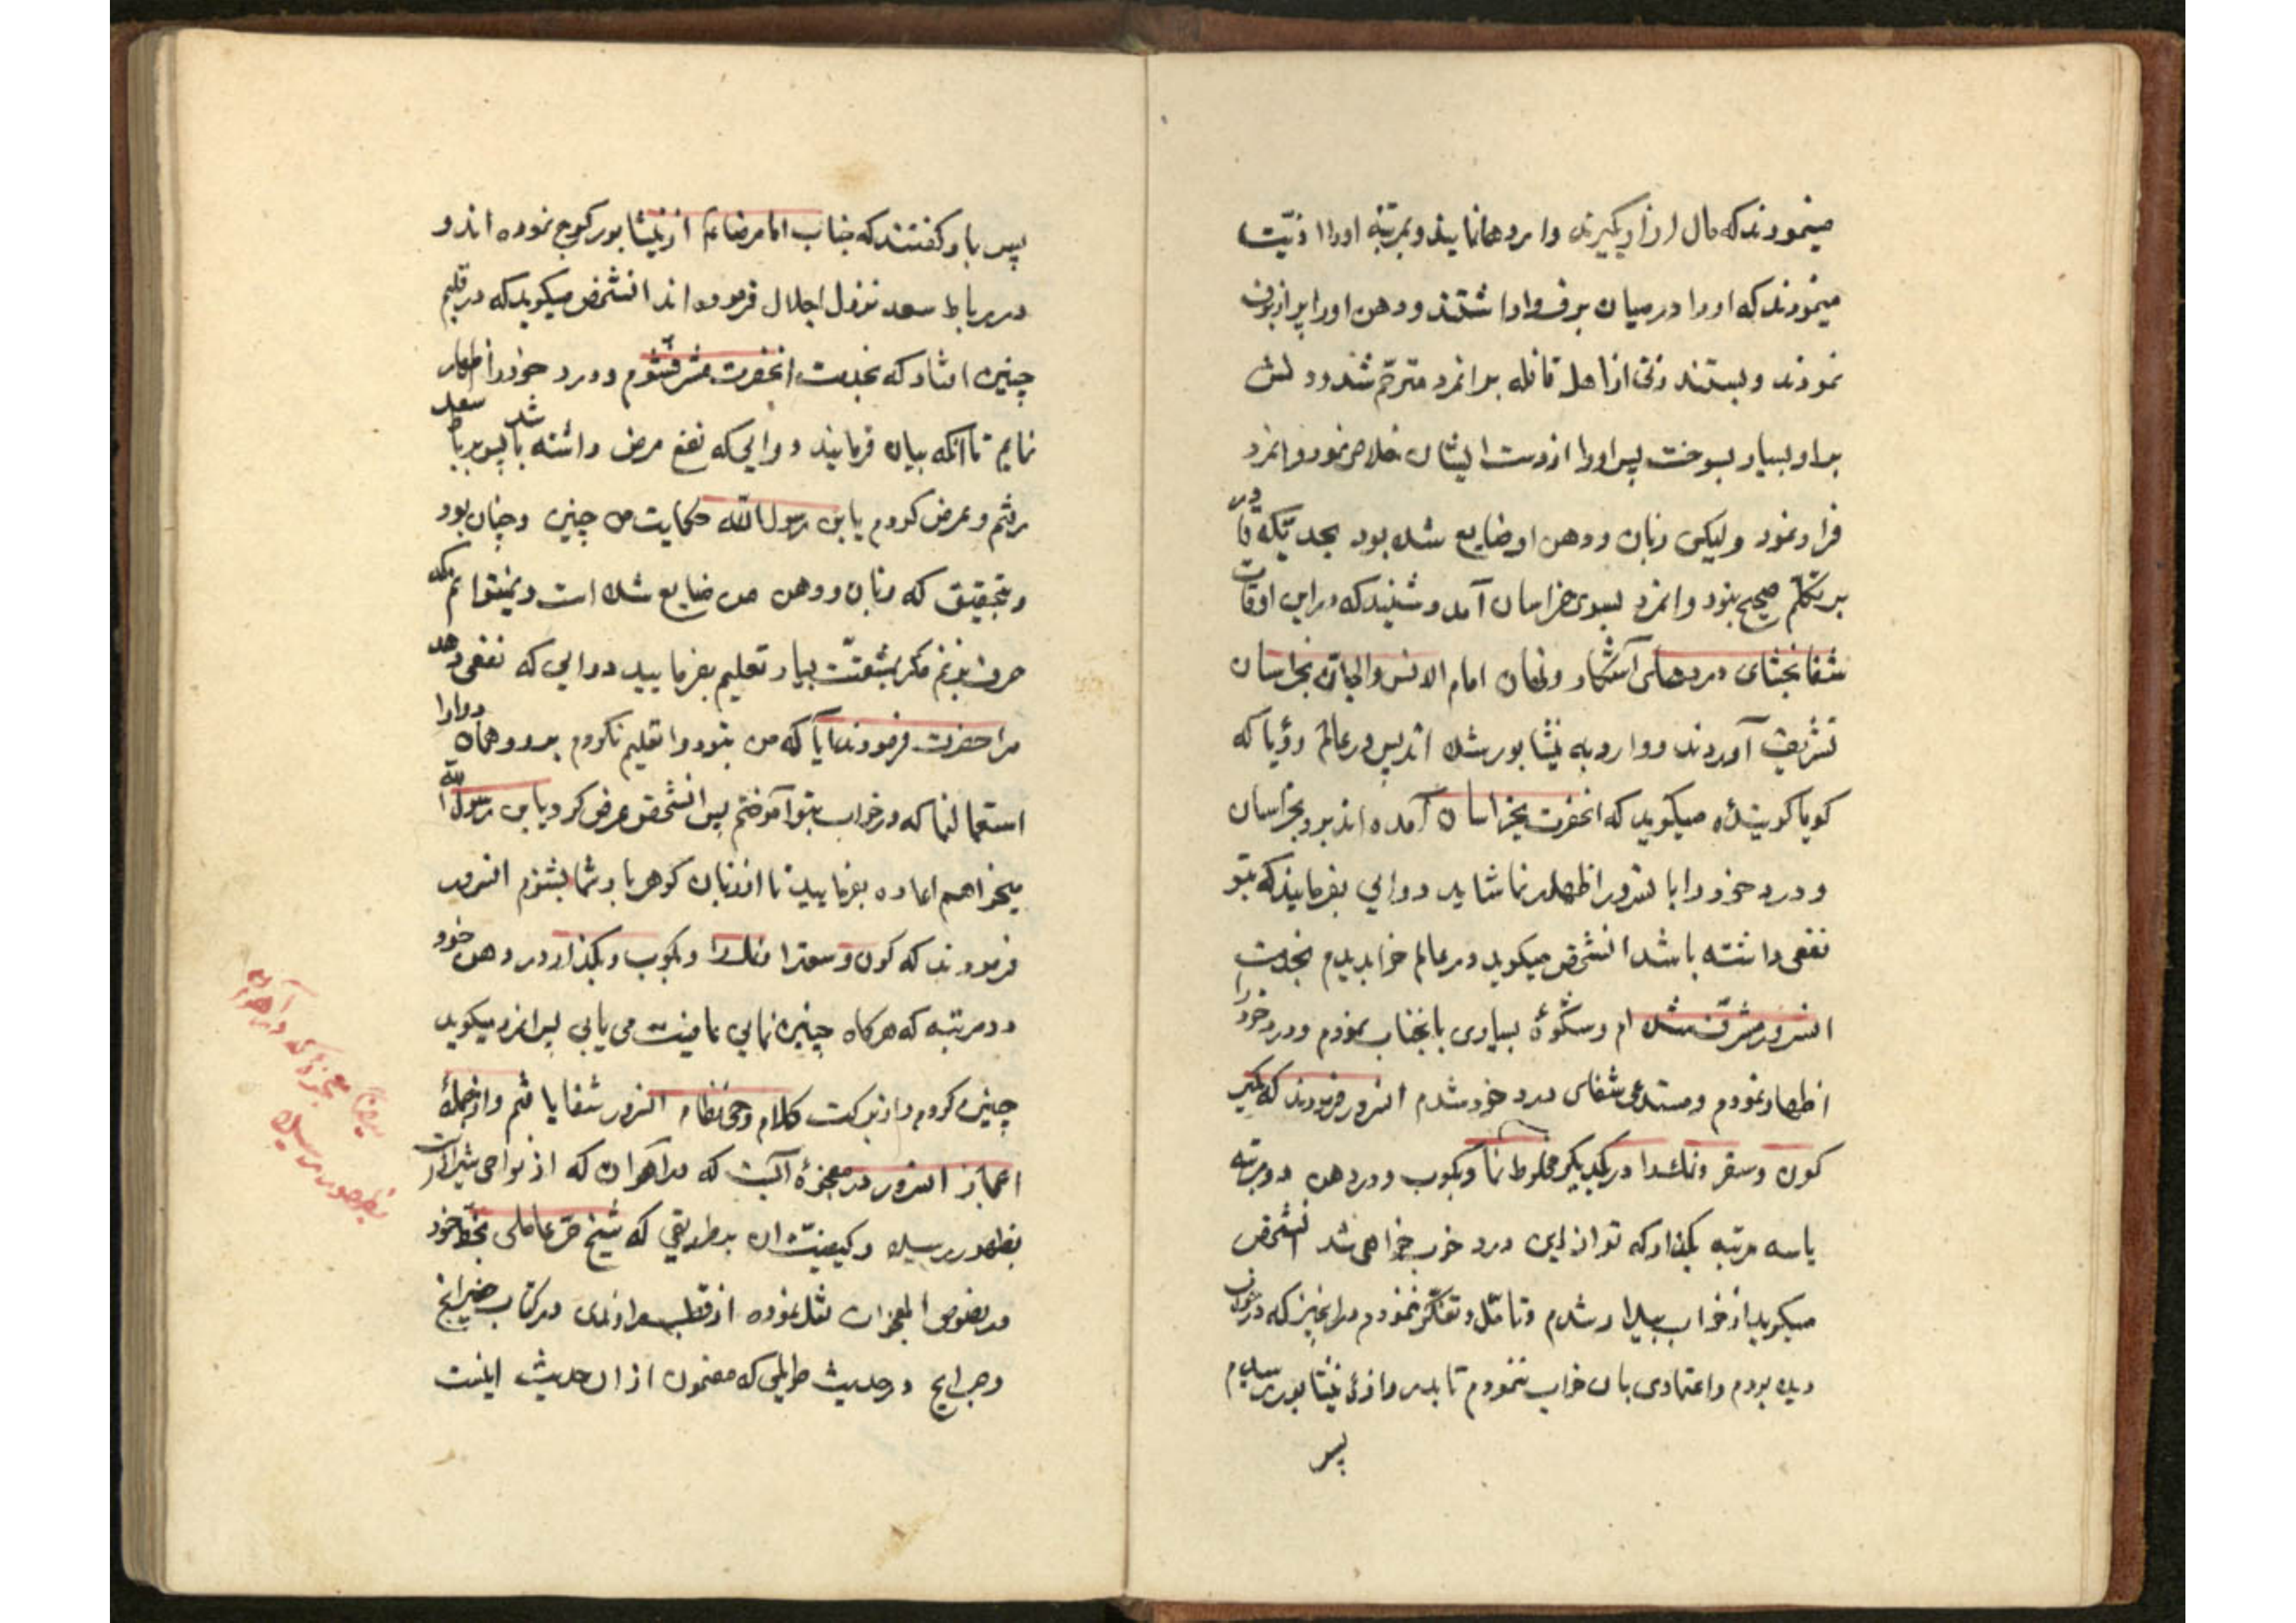 مینمودند که مال از او بگیرند و او را رها نمایند و بمرتبهٔ او را اذیّت
مینمودند که او را در میان برف وا داشتند و دهن او را پر از برف
نمودند و بستند زنی از اهل قافله بدانمرد مترحّم شد و دلش
بر او بسیار بسوخت پس او را از دست ایشان خلاص نمود و انمرد
فرار نمود و لیکن زبان و دهن او ضایع شده بود بحدیّکه قادر
بر تکلّم صحیح نبود و انمرد بسوی خراسان آمد و شنید که در این اوقات
شفا بخشای دردهای آشکار و نهان امام الانس والجانّ بخراسان
تشریف آوردند و وارد به نیشابور شده اند پس در عالم رؤیا که
کویا کویندهٔ میکوید که انحضرت بخراسان آمده اند برو بخراسان
و درد خود را با نسرور اظهار نما شاید دوائی بفرمایند که بتو
نفعی داشته باشد انشخص میکوید در عالم خواب دیدم بخدمت
انسرور مشرّف شده ام و شکوهٔ بسیاری بانجناب نمودم و درد خود را
اظهار نمودم و مستدعی شفای درد خود شدم انسرور فرمودند که بکیر
کمون و سعتر و نمک را در یکدیکر مخلوط نما و بکوب و در دهن دو مرتبه
یا سه مرتبه بکذار که تو از این درد خوب خواهی شد انشخص
میکوید از خواب بیدار شدم و تامّل و تفکّر ننمودم در انچیز که در خواب
دیده بودم و اعتمادی بان خواب ننمودم تا بدروازهٔ نیشابور رسیدم
پس
پس باو کفتند که جناب امام رضا ع از نیشابور کوچ نموده اند و
در رباط سعد نزول اجلال فرموده اند انشخص میکوید که در قلبم
چنین افتاد که بخدمت انحضرت مشرّف شوم و درد خود را اظهار
نمایم تا انکه بیان فرمایند دوائی که نفع مرض داشته باشد پس برباط سعد
رفتم و عرض کردم یا بن رسول الله حکایت من چنین و چنان بود
و بتحقیق که زبان و دهن من ضایع شده است و نمیتوانم که
حرف بزنم مکر بمشقّت بسیار تعلیم بفرمایید دوائی که نفعی دهد
مرا حضرت فرمودند آیا که من بتو دوا تعلیم نکردم برو و همان دوا را
استعمال نما که در خواب بتو آموختم پس انشخص عرض کرد یا بن رسول الله
میخواهم اعاده بفرمایید تا از زبان کوهر بار شما بشنوم انسرور
فرمودند که کمون و سعتر و نمک را و بکوب و بکذار در دهن خود
دو مرتبه که هرکاه چنین نمائی عافیت می یابی پس انمرد میکوید
چنین کردم و از برکت کلام وحی نظام انسرور شفا یافتم و از جملهٔ
اعجاز انسرور معجزهٔ آنست که در اهوران که از نواحی شیرازات
بظهور رسیده و کیفیّت ان بطریقی که شیخ حرّ عاملی بخطّ خود
در نصوص المعجزات نقل نموده از قطب راوندی در کتاب خرایج
و جرایح در حدیث طولانی که مضمون از ان حدیث اینست
بیان معجزهٔ که در آهوران
بظهور رسیده